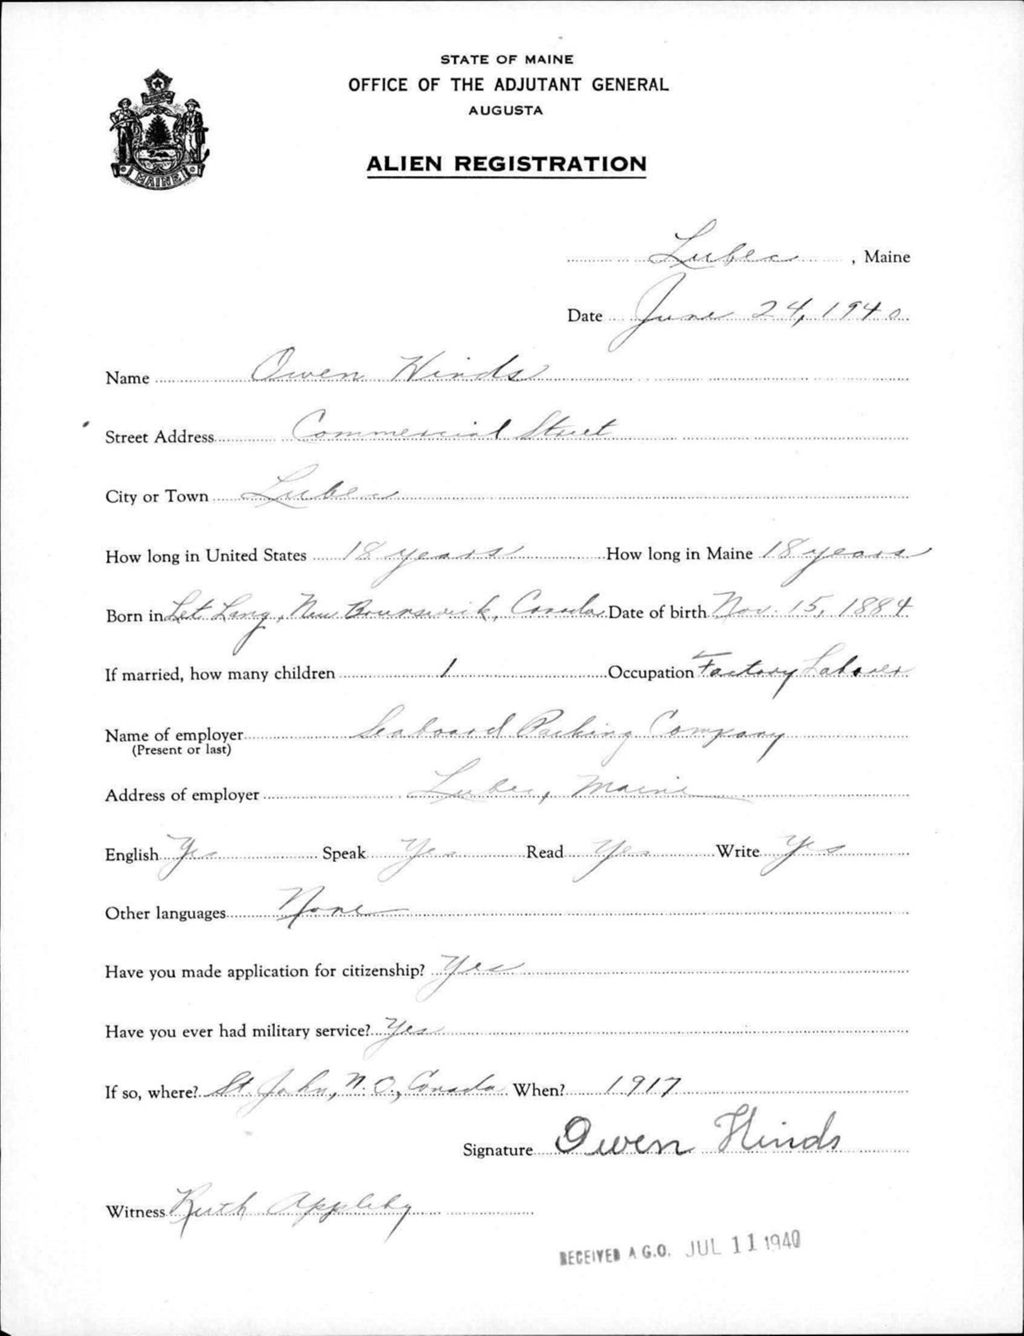 STATE OF MAINE
OFFICE OF THE ADJUTANT GENERAL
AUGUSTA
MAINE
ALIEN REGISTRATION
Lubec, Maine
Date June 24, 1940
Name Owen Hinds
Street Address Commercial Street
City or Town Lubec
How long in United States 18 years How long in Maine 18 years
Born in Let Lang, New Brunswick, Canada Date of birth Nov. 15, 1884
If married, how many children 1 Occupation Factory Laborer
Name of employer Seaboard Packing Company
(Present or last)
Address of employer Lubec, Maine
English Yes Speak Yes Read Yes Write Yes
Other languages None
Have you made application for citizenship? Yes
Have you ever had military service? Yes
If so, where? St. John, N. O., Canada When? 1917
Signature Owen Hinds
Witness Ruth Appleby
RECEIVED A.G.O. JUL 11 1940